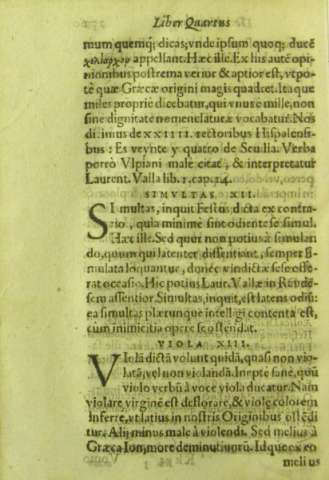 Liber Quartus
mum quemq; dicas; vnde ipsum quoq; ducẽ
χιλίαρχον appellant. Hæc ille. Ex his autẽ opi-
nionibus postrema verior & aptior est, vtpo-
tè quæ Græcæ origini magis quadret. Ita que
miles propriè dicebatur, qui vnus è mille, non
sine dignitate nomenclaturæ vocabatur. Nos
dicimus de XXIIII. rectoribus Hispalensi-
bus: Es veynte y quatro de Seuilla. Verba
porrò Vlpiani malè citat, & interpretatur
Laurent. Valla lib. 1. cap. 14.
SIMVLTAS. XII.
Simultas, inquit Festus, dicta ex contra-
rio, quia minimè sint odientes e simul.
Hæc ille. Sed quor non potius à simulan
do, quum qui latenter dissentiunt, semper si-
mulata loquantur, donec vindictæ sese offe-
rat occasio. Hic potius Laur. Vallæ in Raudẽ-
sem assentior. Simultas, inquit, est latens odiũ:
ea simultas plærunque intelligi contenta est,
cum inimicitia opere se ostendat.
VIOLA XIII.
Violã dictã volunt quidã, quasi non vio-
latã, vel non violandã. Ineptè sanè, quũ
violo verbũ à voce viola ducatur. Nam
violare virginẽ est deflorare, & violę colorem
inferre, vt latius in nostris Originibus ostẽdi
tur. Alij minus malè à violendi. Sed melius à
Græca Ion, more deminutiuorũ. Idque ex eo
melius